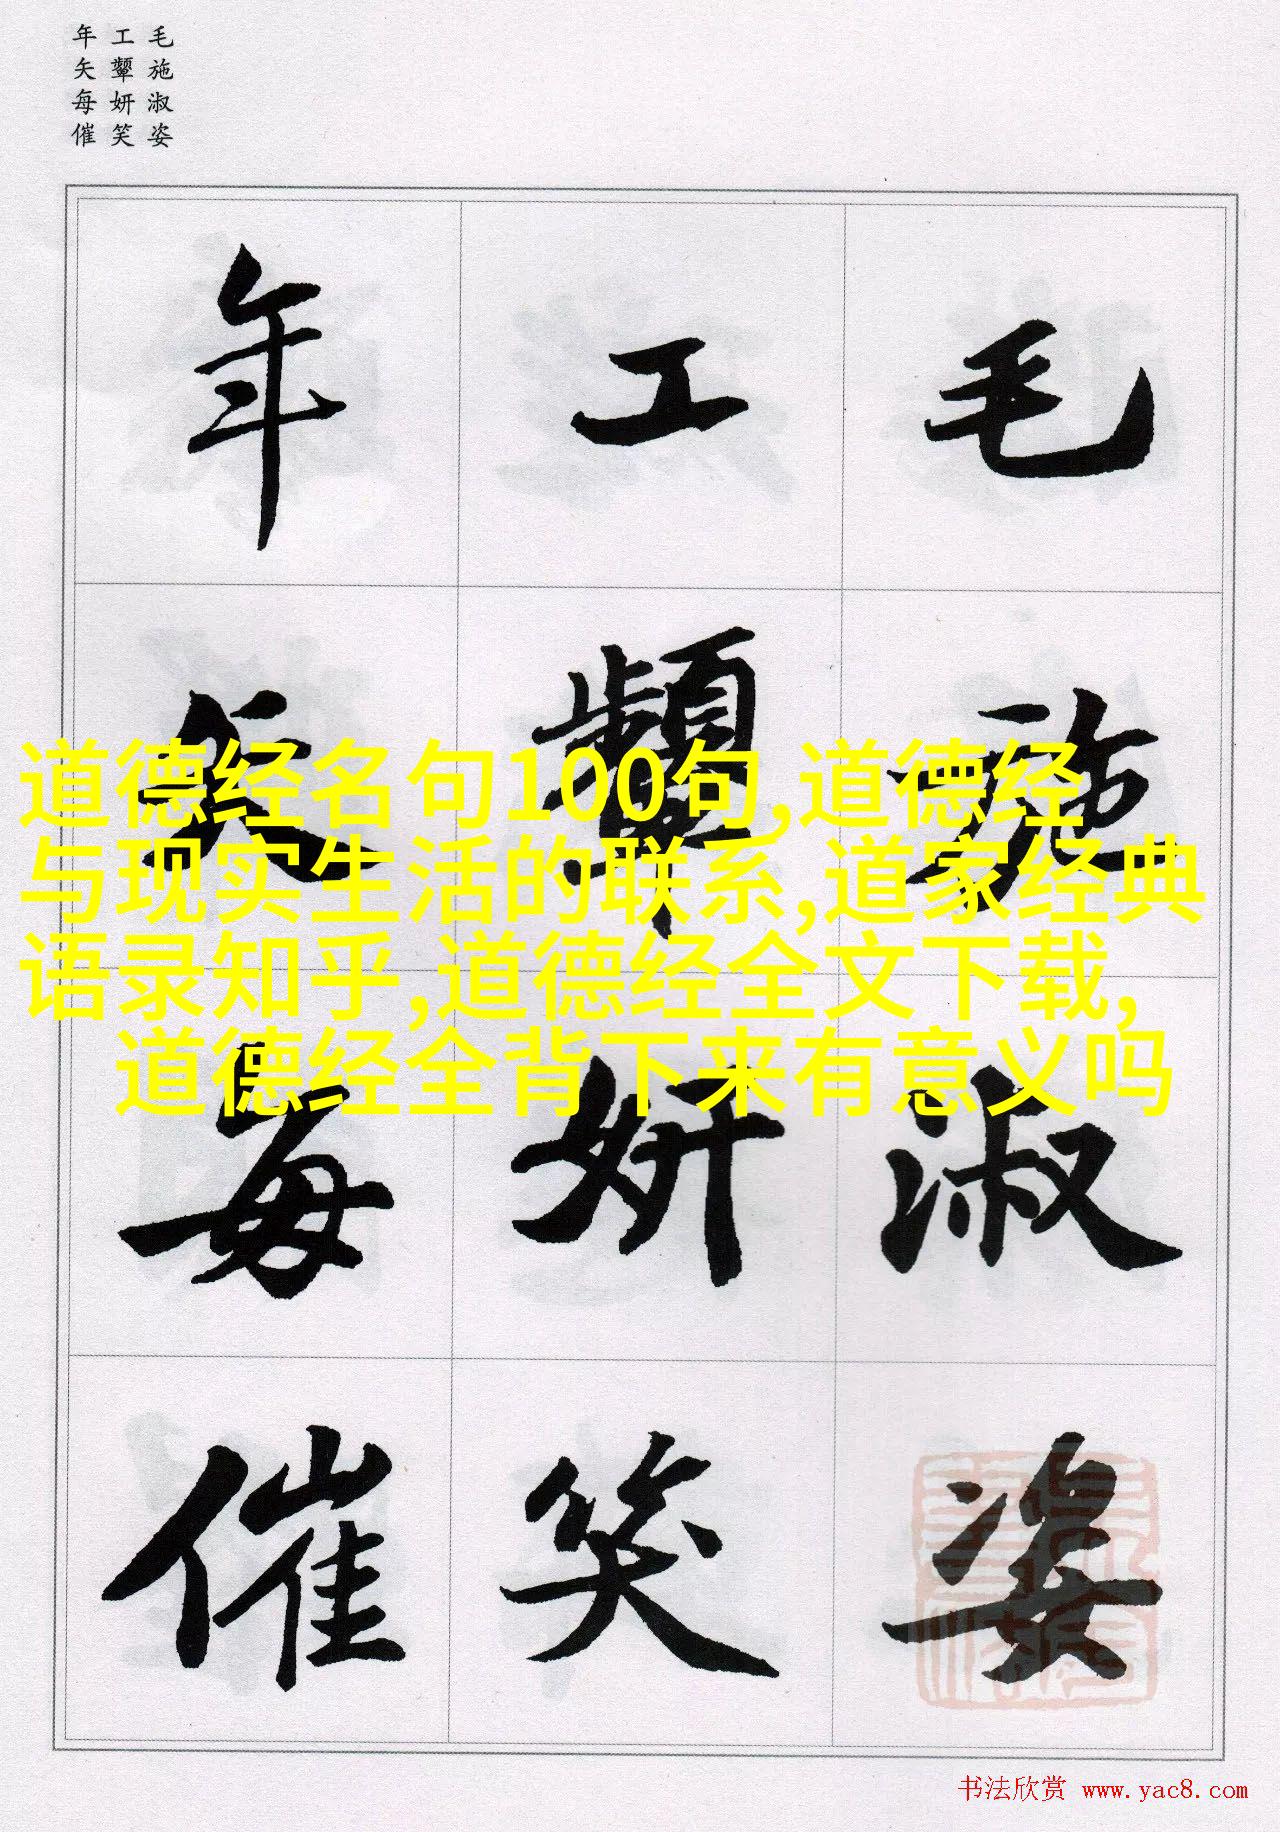 毛施淑姿
工顰妍笑
年矢每催
毛施淑姿
工顰妍笑
年矢每催
道德经名句100句,道德经
与现实生活的联系,道家经典
语录知乎,道德经全文下载,
道德经全背下来有意义吗
书法欣赏 www.yac8.com